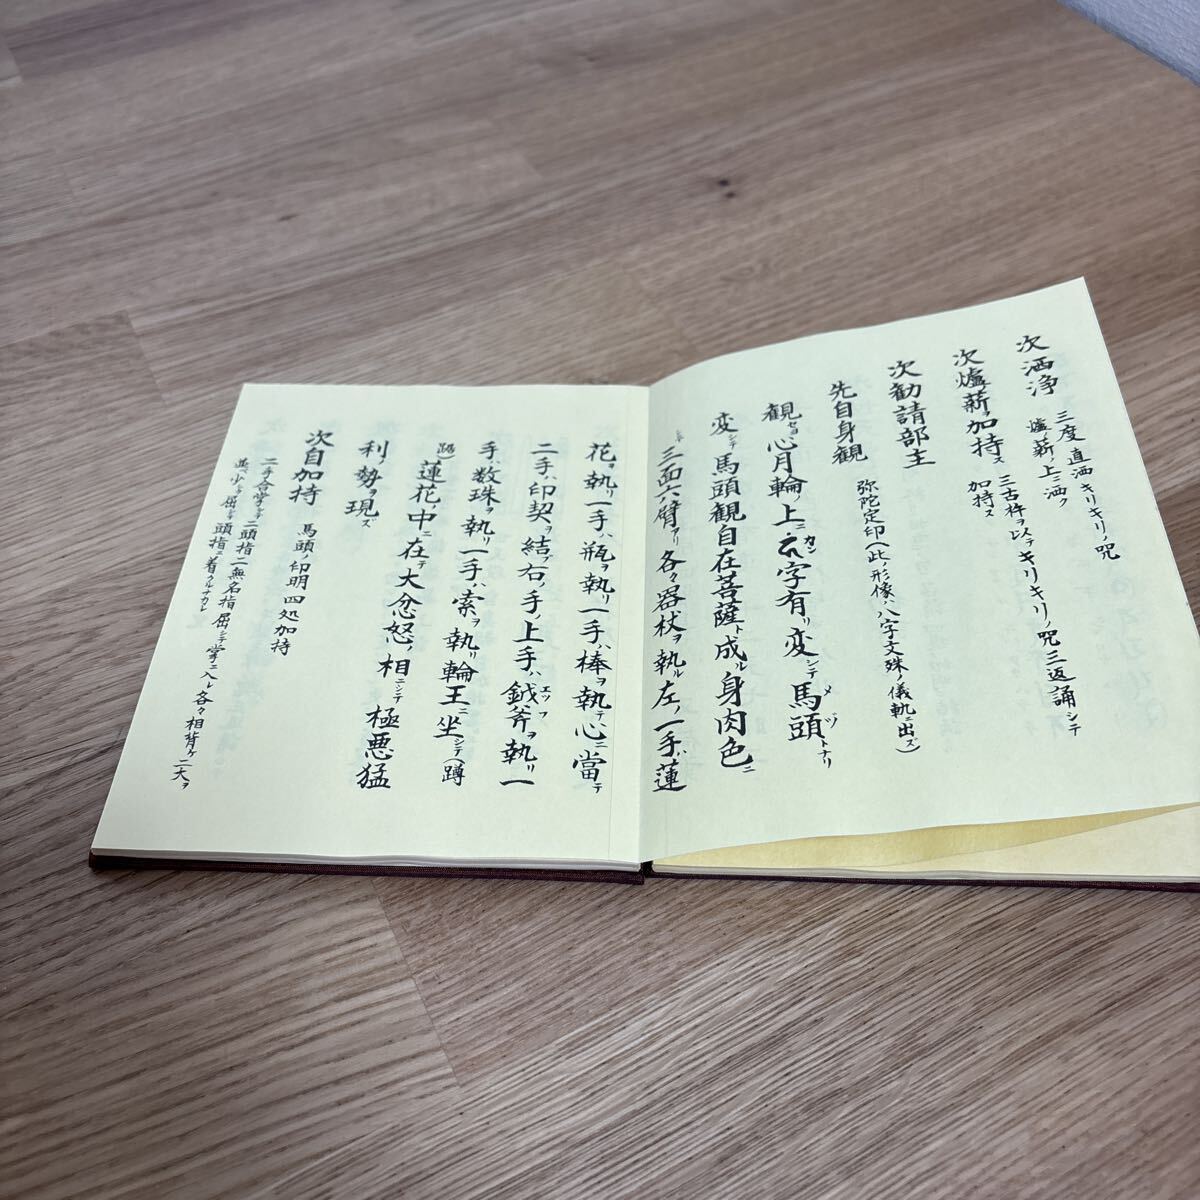 次洒浄 三度直洒キリキリノ呪
爐薪ノ上ニ洒ク
次爐薪ヲ加持ス 三古杵ヲ以テキリキリノ呪三返誦シテ
加持ス
次勧請部主
先自身観 弥陀定印(此ノ形像ハ八字文殊ノ儀軌ニ出ヅ)
観セヨ心月輪ノ上ニ カン字有リ変シテ馬頭トナリ
変シテ馬頭観自在菩薩ト成ル身肉色ニ
シテ三面六臂アリ各々器杖ヲ執ル左ノ一手ハ蓮
花ヲ執リ一手ハ瓶ヲ執リ一手ハ棒ヲ執テ心ニ當テ
二手ハ印契ヲ結ブ右ノ手ノ上手ハ鉞斧ヲ執リ一
手ハ数珠ヲ執リ一手ハ索ヲ執リ輪王ニ坐シテ(蹲
踞)蓮花ノ中ニ在テ大忿怒ノ相ニシテ極悪猛
利ノ勢ヲ現ズ
次自加持 馬頭ノ印明四処加持
二手合掌シテ二頭指二無名指屈シテ掌ニ入レ各々相背ケ二大ヲ
並ベ少シク屈シテ頭指ニ着クルナカレ